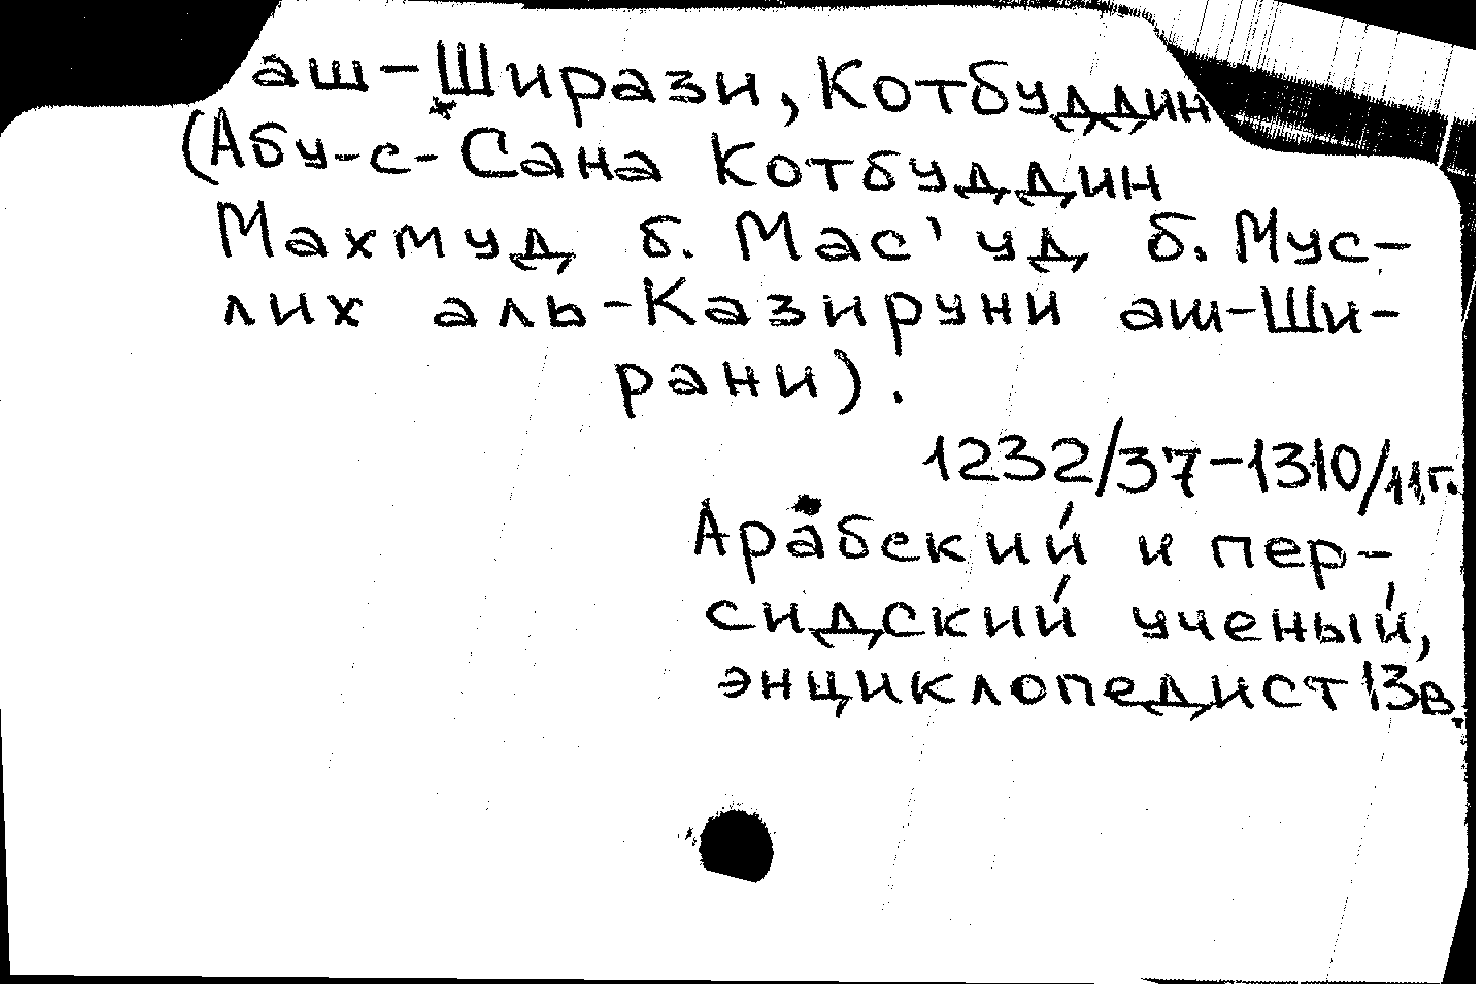 аш-Ширази, Котбуддин
(Абу-с-Сана Котбуддин
Махмуд б. Мас'уд б. Мус-
лих аль-Казируни аш-Ши-
рани).
1232/37-1310/11г.
Арабский и пер-
сидский ученый,
энциклопедист 13в.